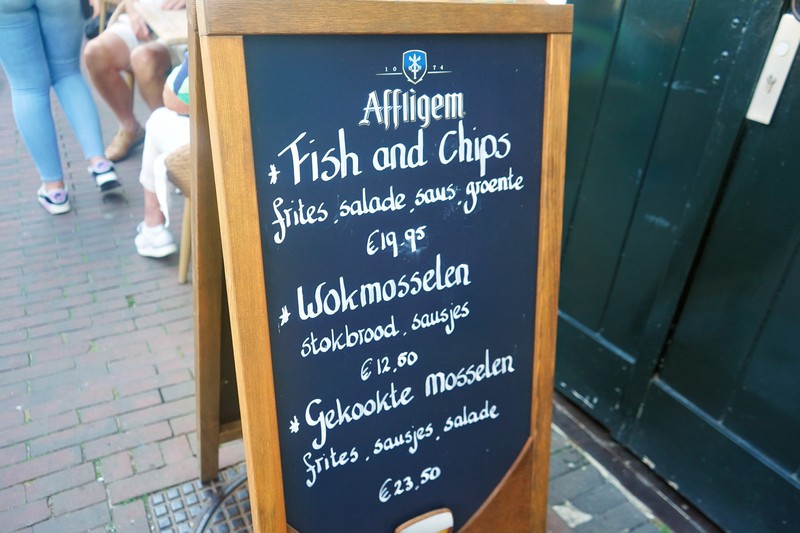 10 74
Affligem
* Fish and Chips
frites, salade, saus, groente
€19.95
* Wokmosselen
stokbrood, sausjes
€12.50
* Gekookte Mosselen
frites, sausjes, salade
€23.50